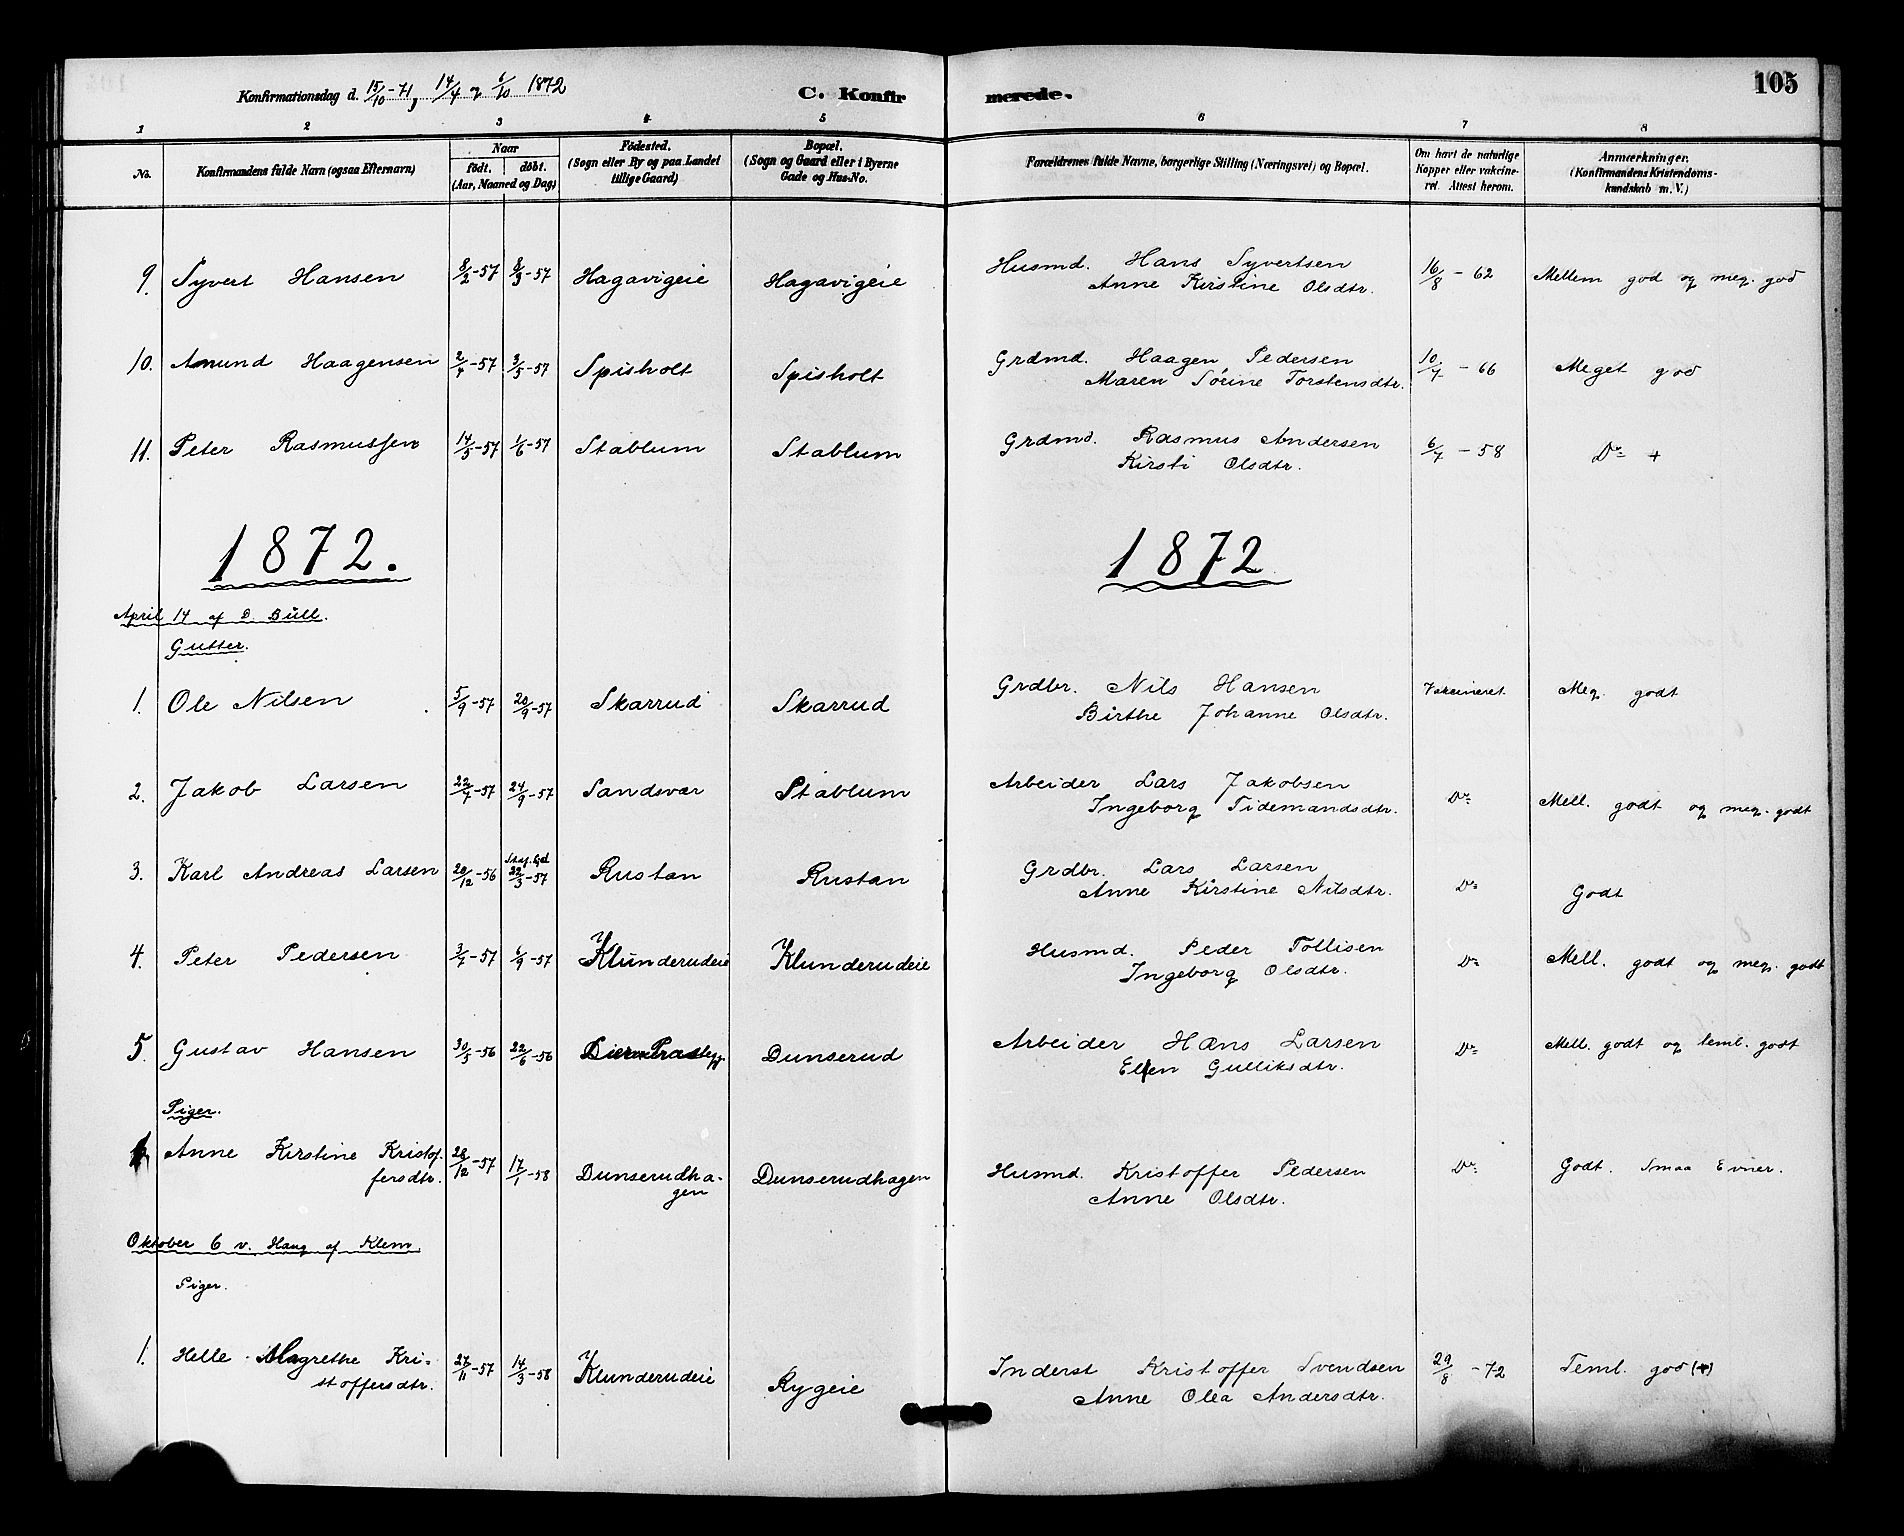 Konfirmationsdag d. 15/10-71, 14/4 & 6/10 1872 C. Konfirmerede. 105
1 2 3 4 5 6 7 8
No. Konfirmandens fulde Navn (ogsaa Efternavn) Naar født. døbt. (Aar, Maaned og Dag) Fødested. (Sogn eller By og paa Landet tillige Gaard) Bopæl. (Sogn og Gaard eller i Byerne Gade og Hus-No. Forældrenes fulde Navne, borgerlige Stilling (Næringsvei) og Bopæl. Om havt de naturlige Kopper eller vakcineret. Attest herom. Anmærkninger. (Konfirmandens Kristendomskundskab m. V.)
9. Syvert Hansen 8/2-57 8/3-57 Hagavigeie Hagavigeie Husmd. Hans Syvertsen 16/8 - 62 Mellem god og meg. god
Anne Kirstine Olsdtr.
10. Amund Haagensen 2/4-57 3/5-57 Spisholt Spisholt Grdmd. Haagen Pedersen 10/7 - 66 Meget god
Maren Sørine Torstensdtr.
11. Peter Rasmussen 14/5-57 1/6-57 Stablum Stablum Grdmd. Rasmus Andersen 6/7 - 58 Do +
Kirsti Olsdtr.
1872. 1872
April 14 af D. Bull.
Gutter.
1. Ole Nilsen 5/9-57 20/9-57 Skarrud Skarrud Grdbr. Nils Hansen Vakcineret. Meg. godt
Birthe Johanne Olsdtr.
2. Jakob Larsen 22/7-57 24/9-57 Sandsvær Stablum Arbeider Lars Jakobsen Do Mell. godt og meg. godt
Ingeborg Tidemandsdtr.
3. Karl Andreas Larsen 20/12-56 22/3-57 Rustan Rustan Grdbr. Lars Larsen Do Godt
Anne Kirstine Nilsdtr.
4. Peter Pedersen 3/7-57 6/9-57 Klunderudeie Klunderudeie Husmd. Peder Tollisen Do Mell. godt og meg. godt
Ingeborg Olsdtr.
5. Gustav Hansen 30/5-56 22/6-56 Dunserud Arbeider Hans Larsen Do Mell. godt og teml. godt
Ellen Gulliksdtr.
Piger.
1. Anne Kirstine Kristof- 28/12-57 17/1-58 Dunserudha- Dunserudhagen Husmd. Kristoffer Pedersen Do Godt. Smaa Evner.
fersdtr. gen Anne Olsdtr.
Oktober 6 v. Haug af Klem.
Piger.
1. Helle Magrethe Kri- 27/11-57 14/3-58 Klunderudeie Rygeie Inderst Kristoffer Svendsen 29/8 - 72 Teml. god (+)
stoffersdtr. Anne Olea Andersdtr.